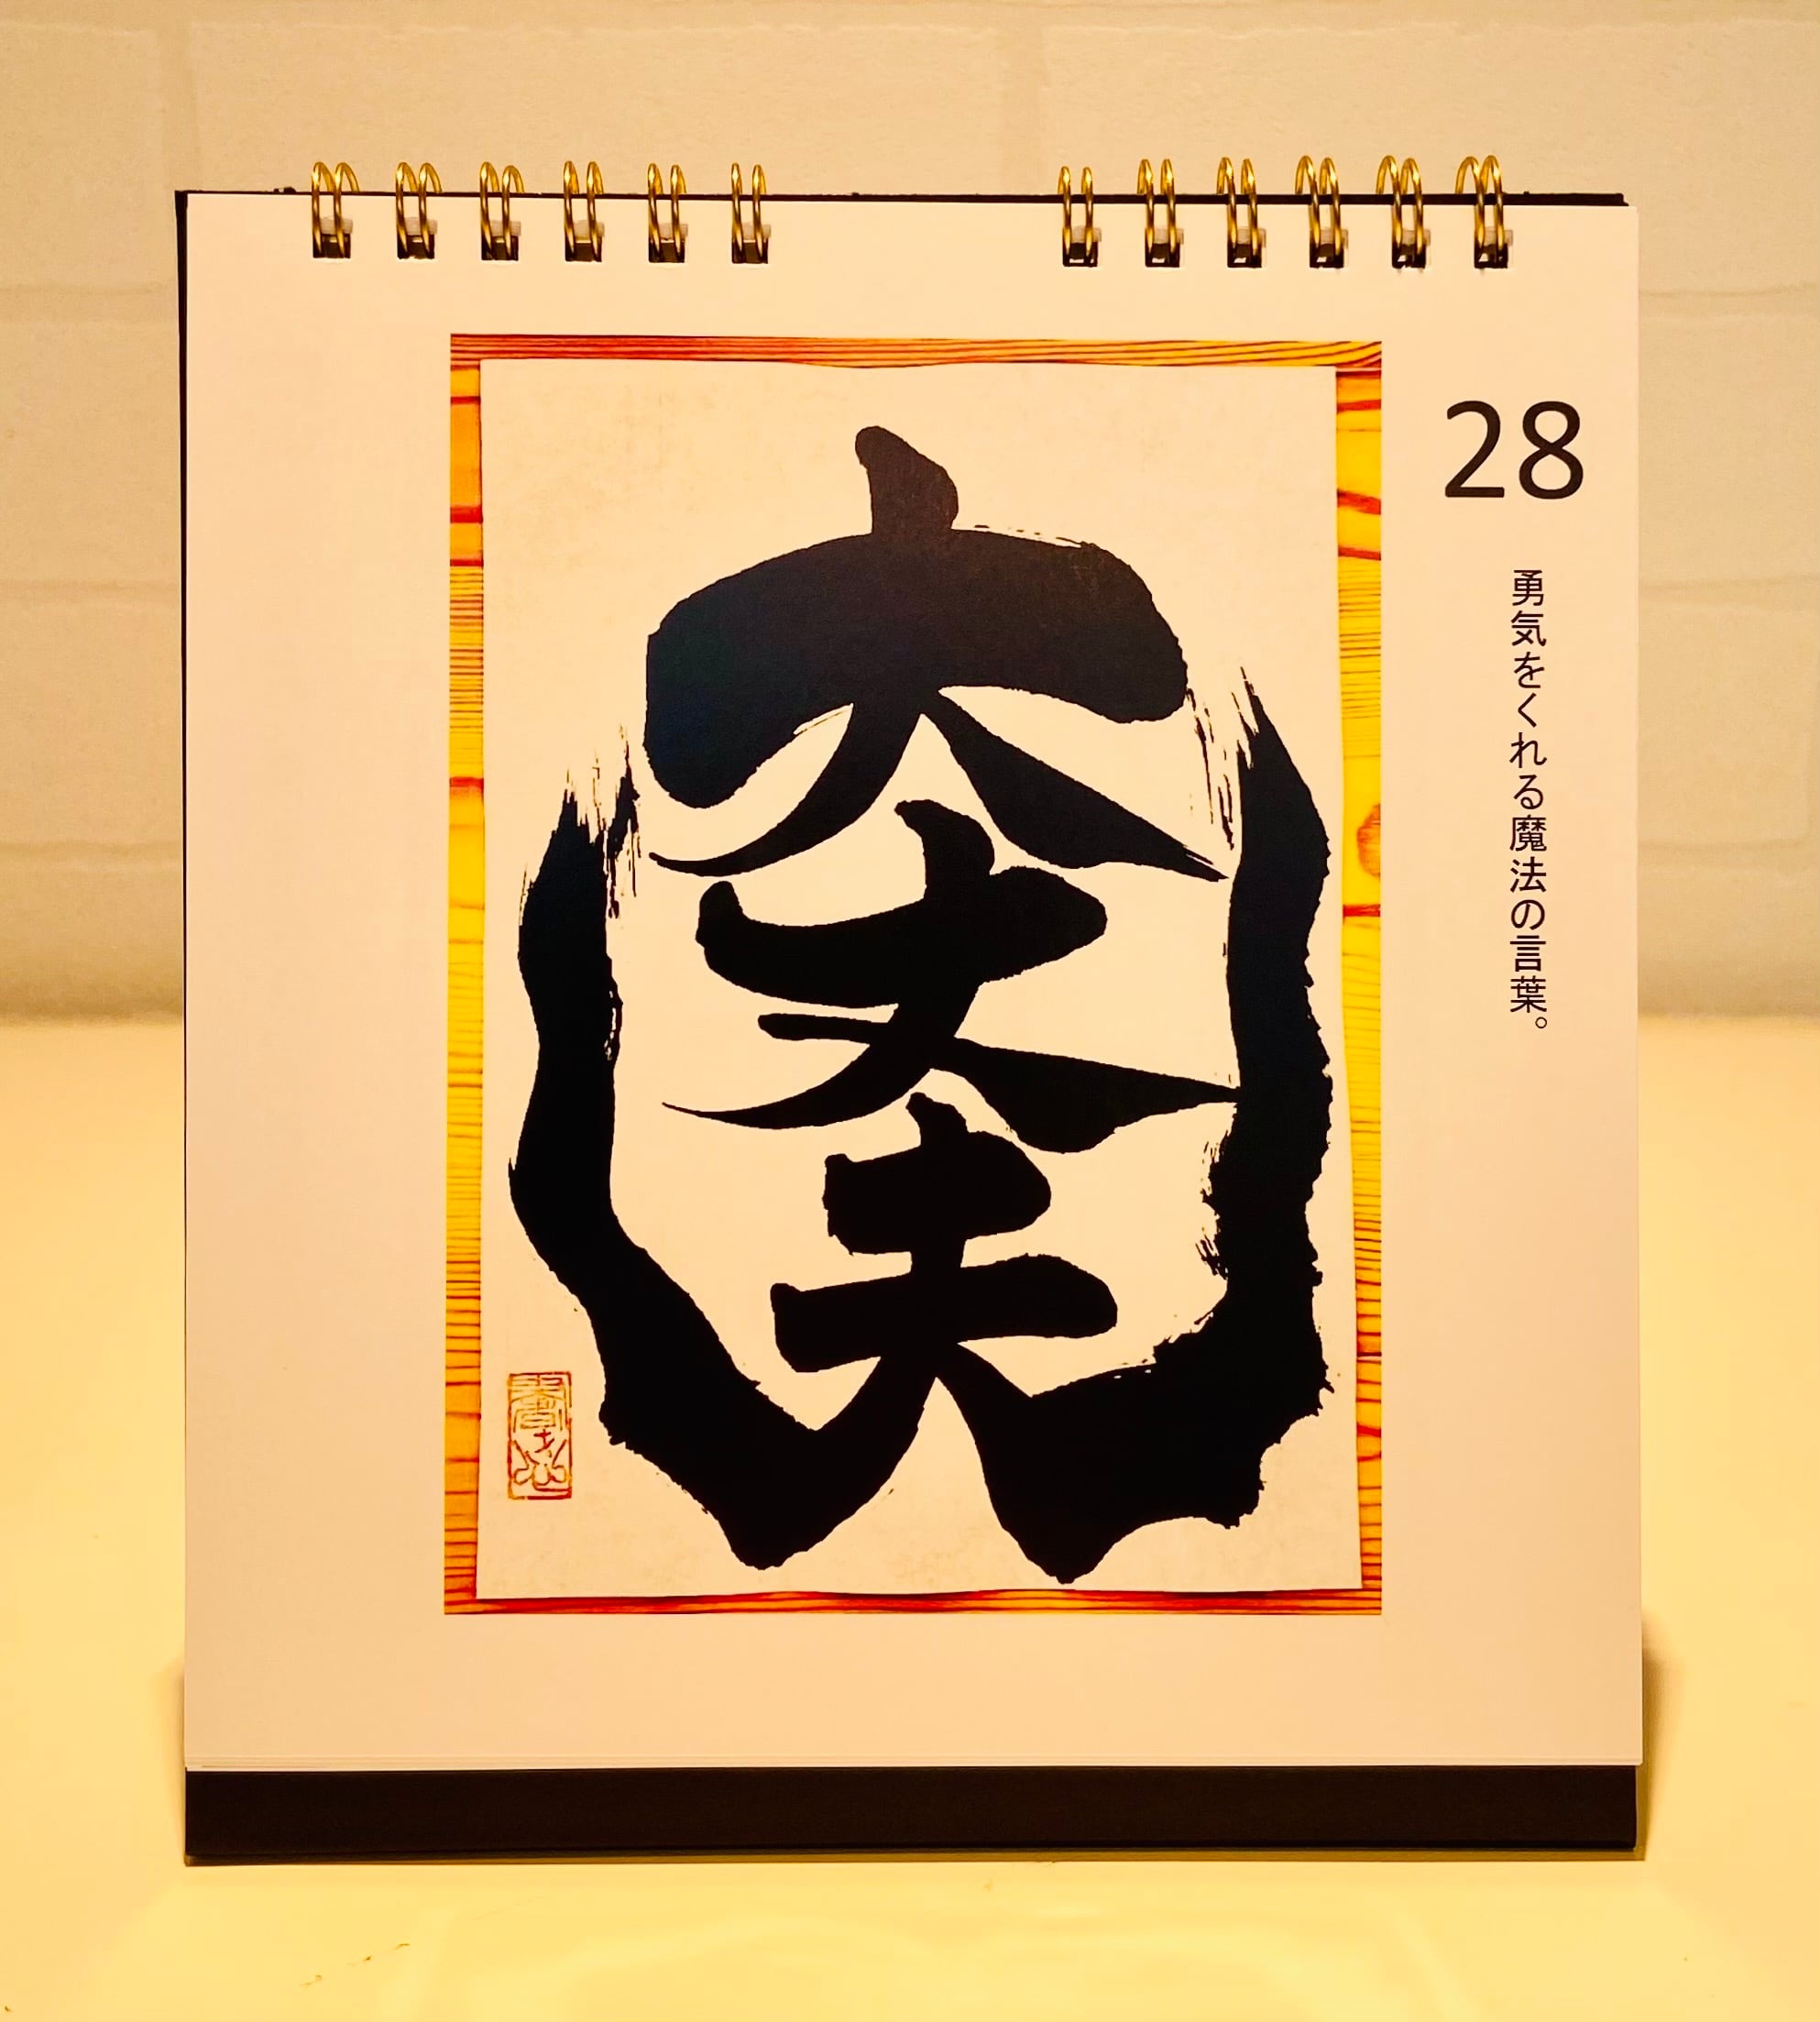 28
勇気をくれる魔法の言葉。
大丈夫